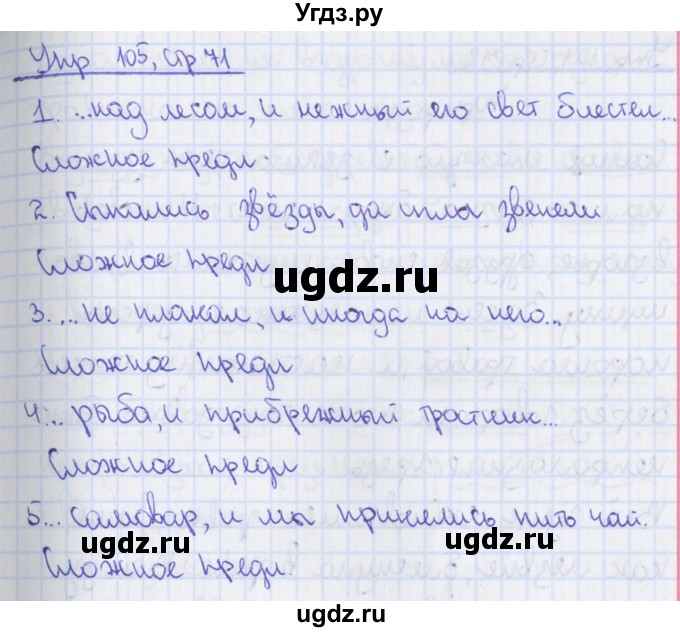 Угдз.ру
Упр 105, стр 71
1. ...над лесом, и нежный его свет блестел...
Сложное предл
2. Сыпались звёзды, да иглы звенели
Сложное предл
ugdz.ru
3. ...не плакал, и иногда на него...
Сложное предл
4... рыба, и прибрежный тростник...
Сложное предл
5... самовар, и мы принялись пить чай.
ugdz.ru ugdz.ru
Сложное предл.
ugdz.ru